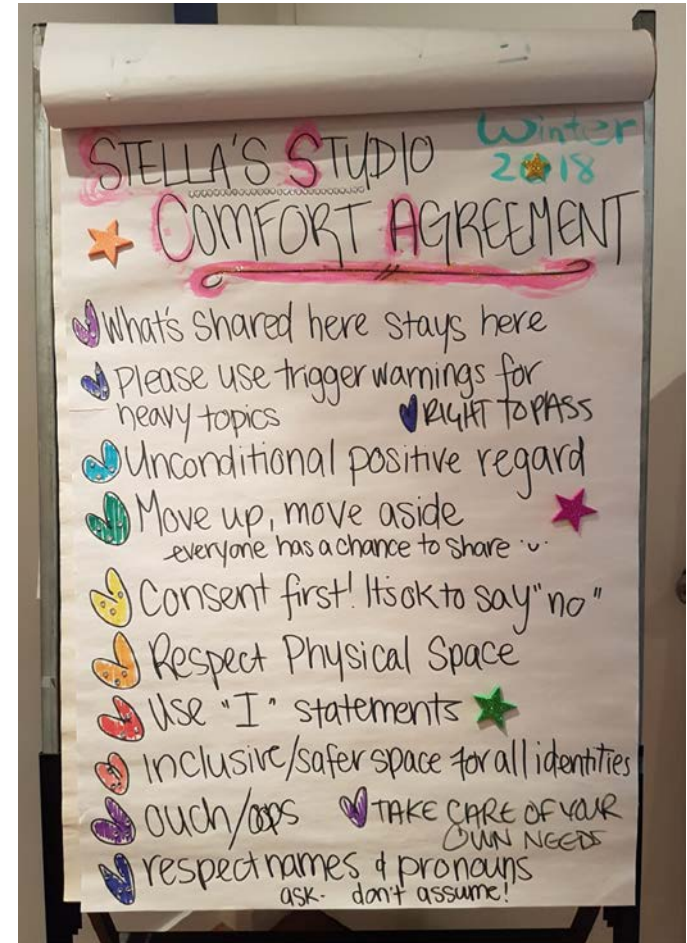 STELLA'S STUDIO
Winter
2018
COMFORT AGREEMENT
What's shared here stays here
Please use trigger warnings for
heavy topics
RIGHT TO PASS
Unconditional positive regard
Move up, move aside
everyone has a chance to share
Consent first! Its ok to say "no"
Respect Physical Space
Use "I" statements
inclusive/safer space for all identities
ouch/oops
TAKE CARE OF YOUR
OWN NEEDS
respect names & pronouns
ask- don't assume!